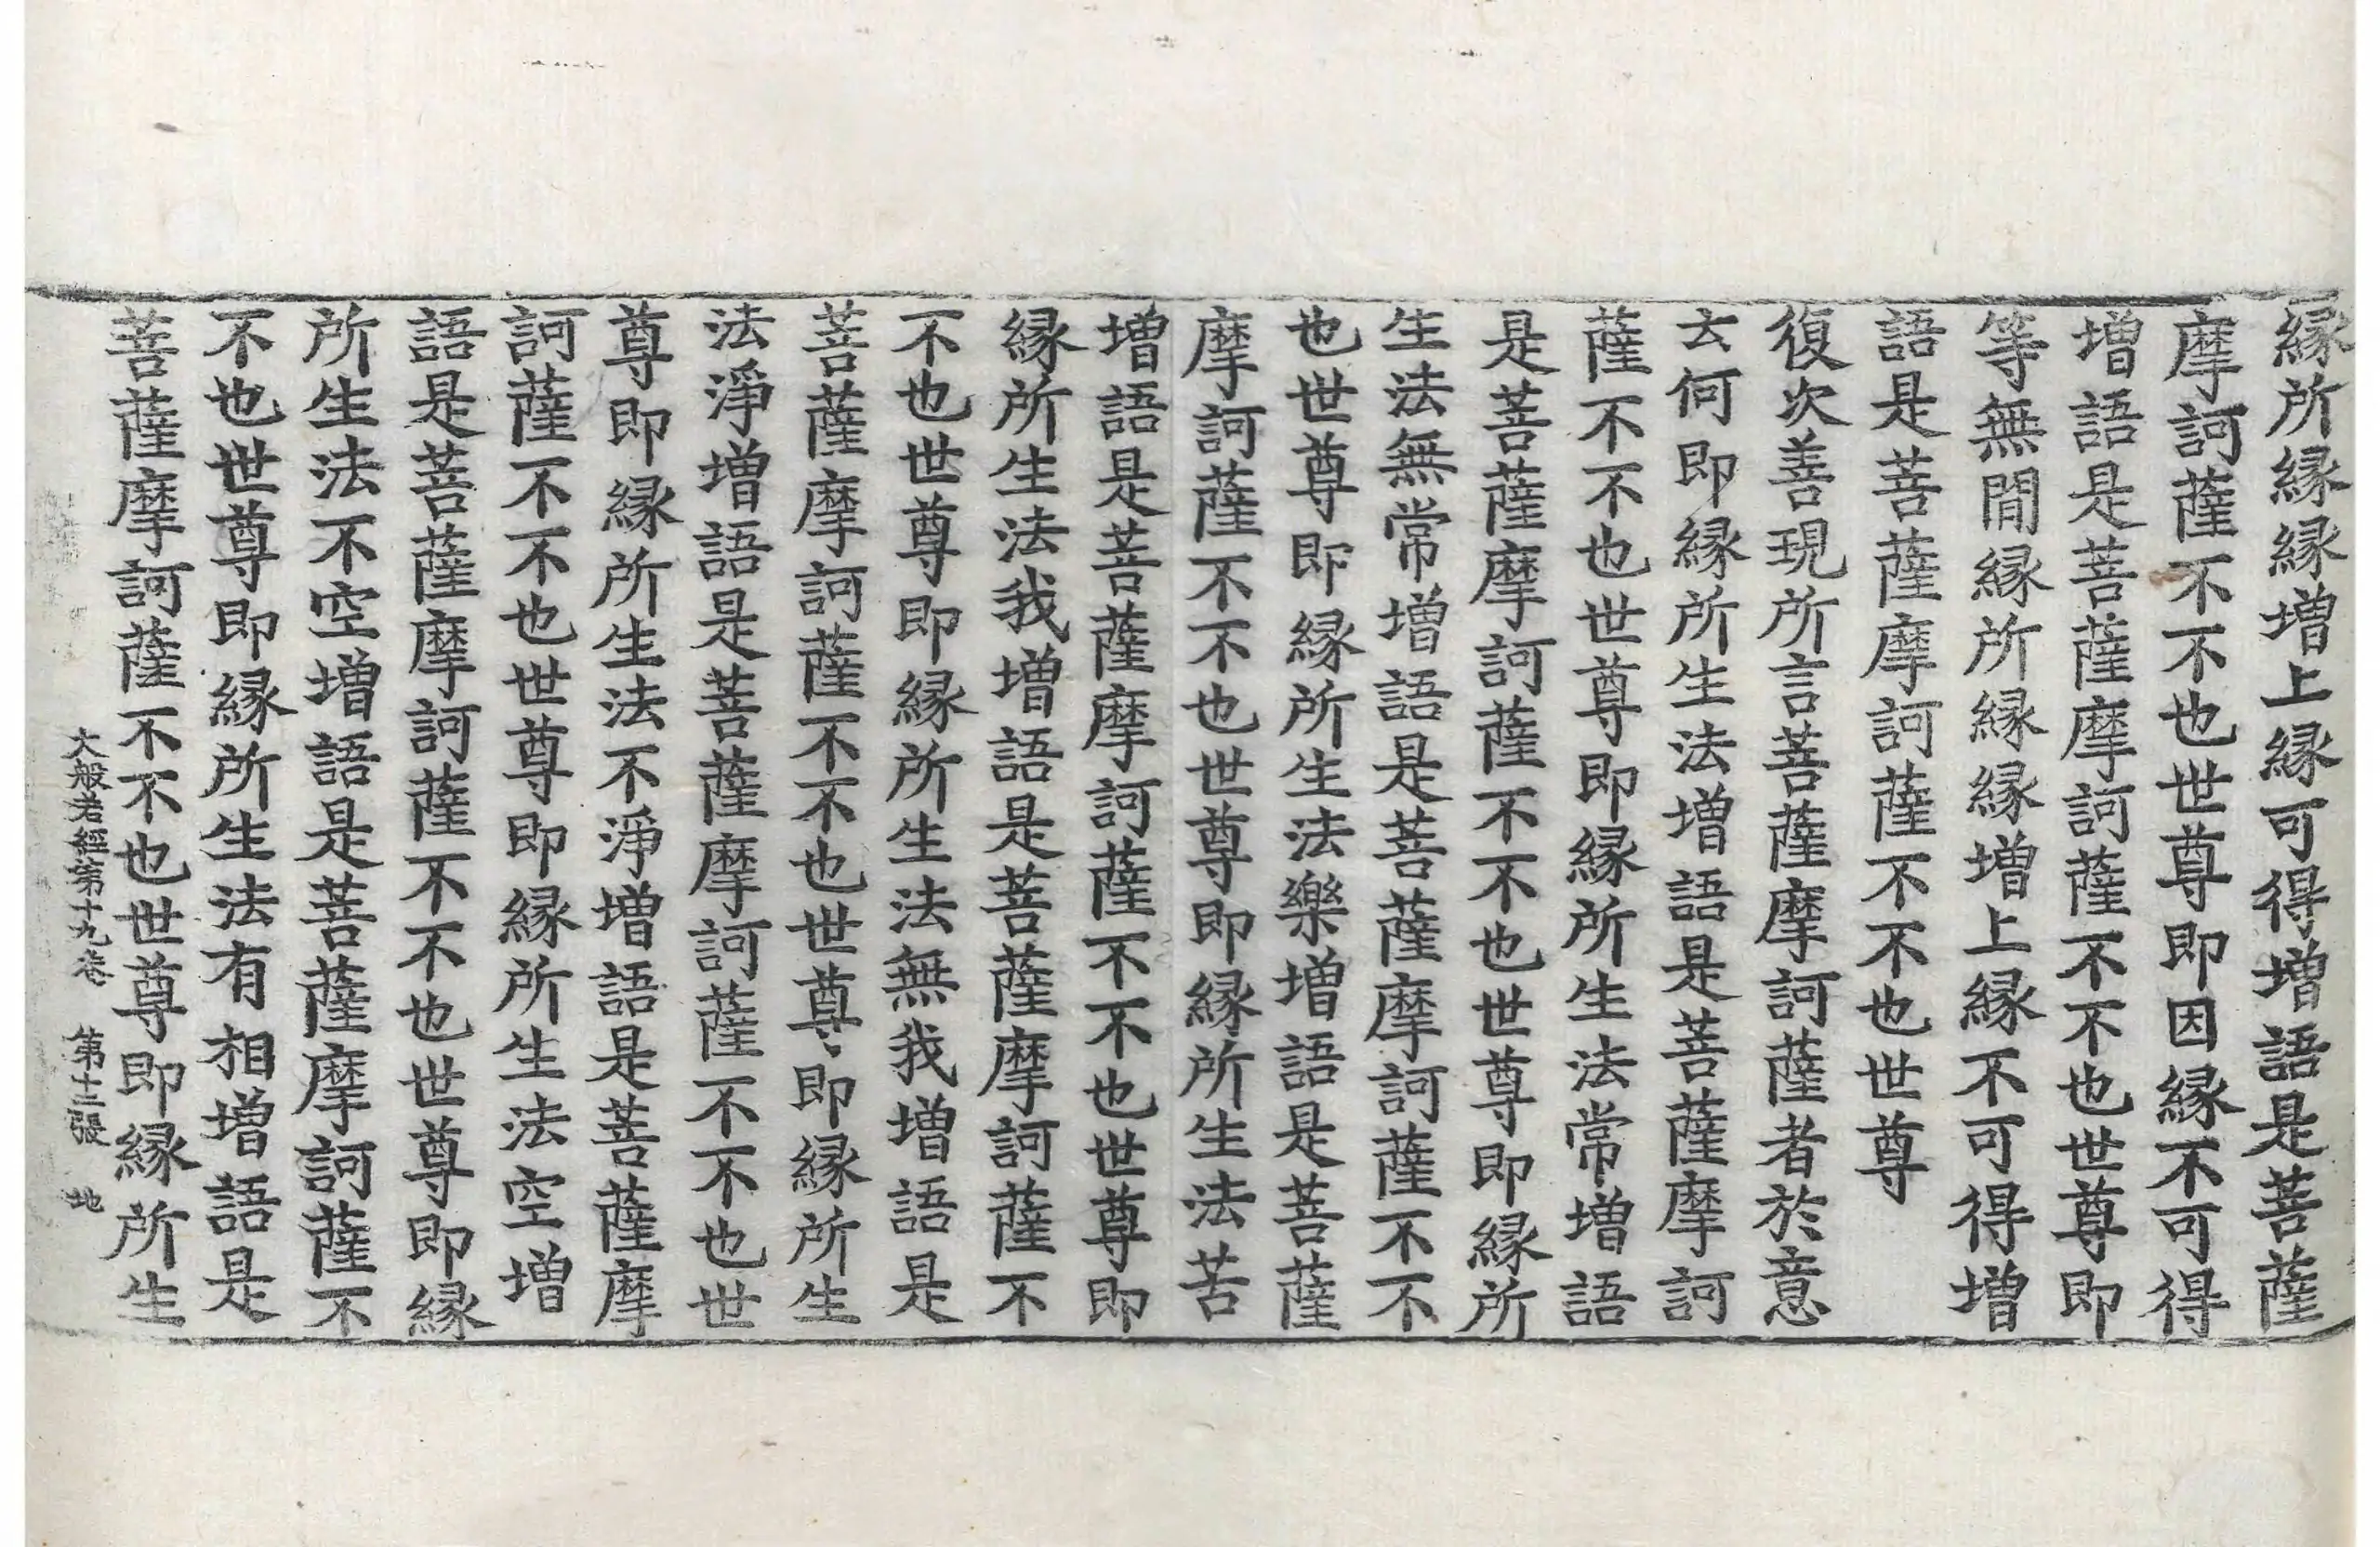 縁所縁縁增上縁可得增語是菩薩
摩訶薩不不也世尊即因縁不可得
增語是菩薩摩訶薩不不也世尊即
等無間縁所縁縁增上縁不可得增
語是菩薩摩訶薩不不也世尊
復次善現所言菩薩摩訶薩者於意
云何即縁所生法增語是菩薩摩訶
薩不不也世尊即縁所生法常增語
是菩薩摩訶薩不不也世尊即縁所
生法無常增語是菩薩摩訶薩不不
也世尊即縁所生法樂增語是菩薩
摩訶薩不不也世尊即縁所生法苦
增語是菩薩摩訶薩不不也世尊即
縁所生法我增語是菩薩摩訶薩不
不也世尊即縁所生法無我增語是
菩薩摩訶薩不不也世尊即縁所生
法淨增語是菩薩摩訶薩不不也世
尊即縁所生法不淨增語是菩薩摩
訶薩不不也世尊即縁所生法空增
語是菩薩摩訶薩不不也世尊即縁
所生法不空增語是菩薩摩訶薩不
不也世尊即縁所生法有相增語是
菩薩摩訶薩不不也世尊即縁所生
大般若經第十九卷 第十二張 地